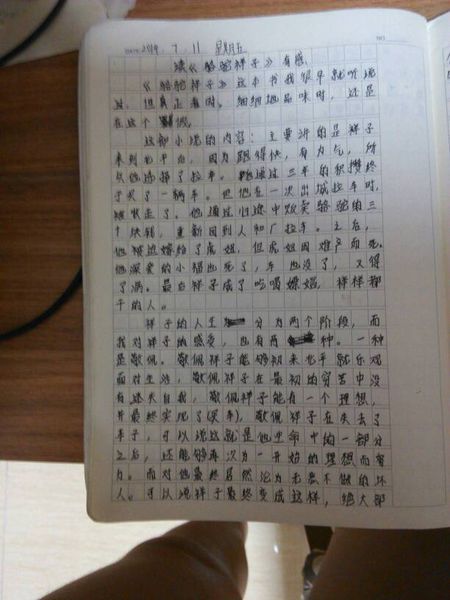 DATE 2014 7 11 星期五
读《骆驼祥子》有感
《骆驼祥子》这本书我很早就听说
过，但真正有时，细细地品味时，还是
在这个暑假。
这部小说的内容：主要讲的是祥子
来到北平后，因为跑得快，有力气，所
以他选择了拉车。他通过三年的积攒终
于买了一辆车。但他在一次出城拉车时，
被抓走了。他通过归途中贩卖骆驼的三
个块钱，重新回到人和厂拉车。之后，
他被迫嫁给了虎妞，但虎妞因难产而死。
他深爱的小福也死了，车也没了，又得
了病。最后祥子成了吃喝嫖赌，样样都
干的人。
祥子的人生分为两个阶段，而
我对祥子的感受，也有两种。一种
是敬佩。敬佩祥子能够初来北平就乐观
面对生活，敬佩祥子在最初的穷苦中没
有迷失自我，敬佩祥子能有一个理想，
并最终实现了(买车)，敬佩祥子在失去了
车子，可以说这就是他生命中的一部分
之后，还能够再次为一开始的理想而奋
力。而对他最终居然沦为无恶不做的坏
人。可以说祥子最终变成这样，绝大部